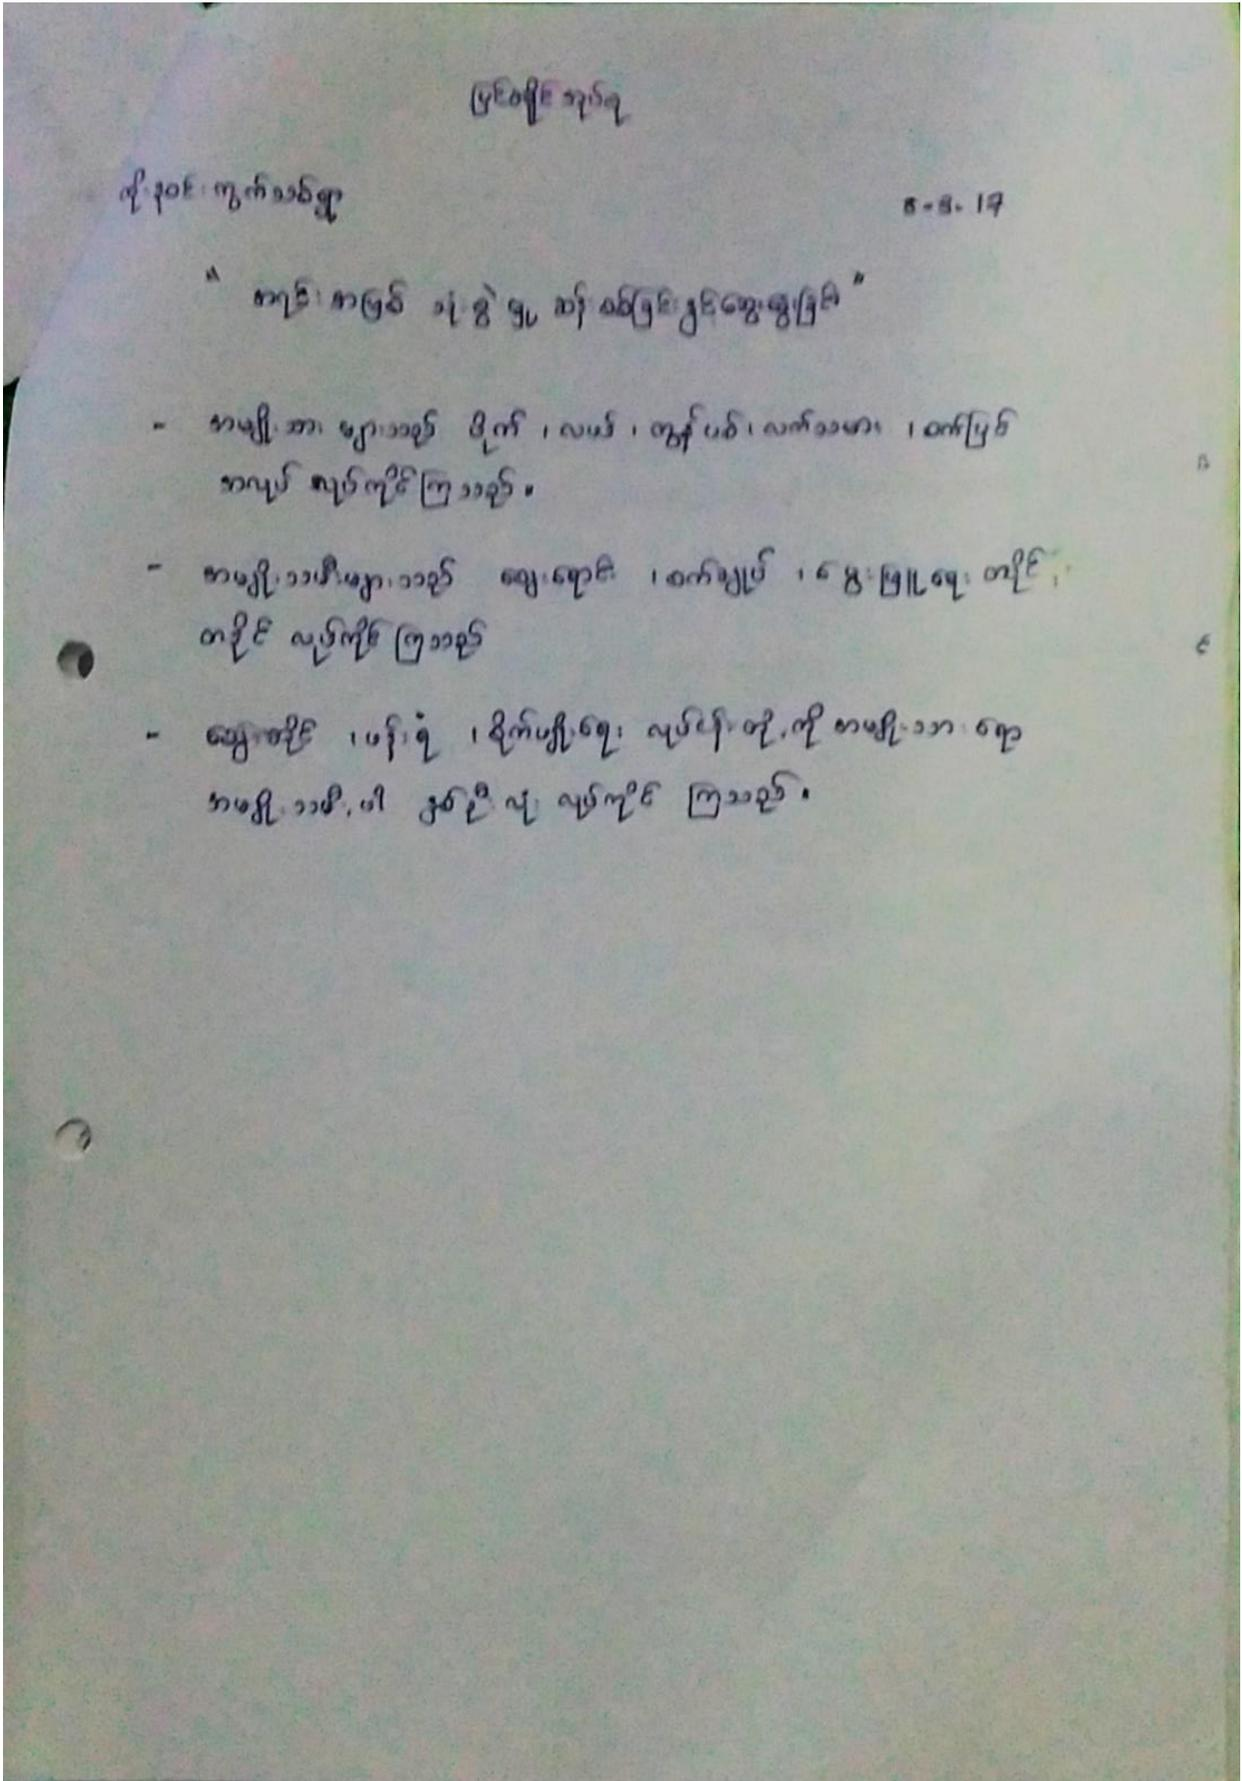 မြင်စရိုင်းအုပ်စု
ကိုးနဝင်းကွက်သစ်ရွာ 8-9-17
" အရင်းအမြစ် သုံးစွဲမှု ဆန်းစစ်ခြင်းနှင့်ဆွေးနွေးခြင်း "
- အမျိုးသားများသည် စိုက် ၊ လယ် ၊ ထွန်ပစ် ၊ လက်သမား ၊ စက်ပြင်
အလုပ် လုပ်ကိုင်ကြသည် ။
- အမျိုးသမီးများသည် ဈေးရောင်း ၊ စက်ချုပ် ၊ မွေးမြူရေး တပိုင်
တနိုင် လုပ်ကိုင်ကြသည်
- ၊ ပန်းရံ ၊ စိုက်ပျိုးရေး လုပ်ငန်းတို့ကို အမျိုးသားရော
အမျိုးသမီးပါ နှစ်ဦးလုံး လုပ်ကိုင် ကြသည် ။